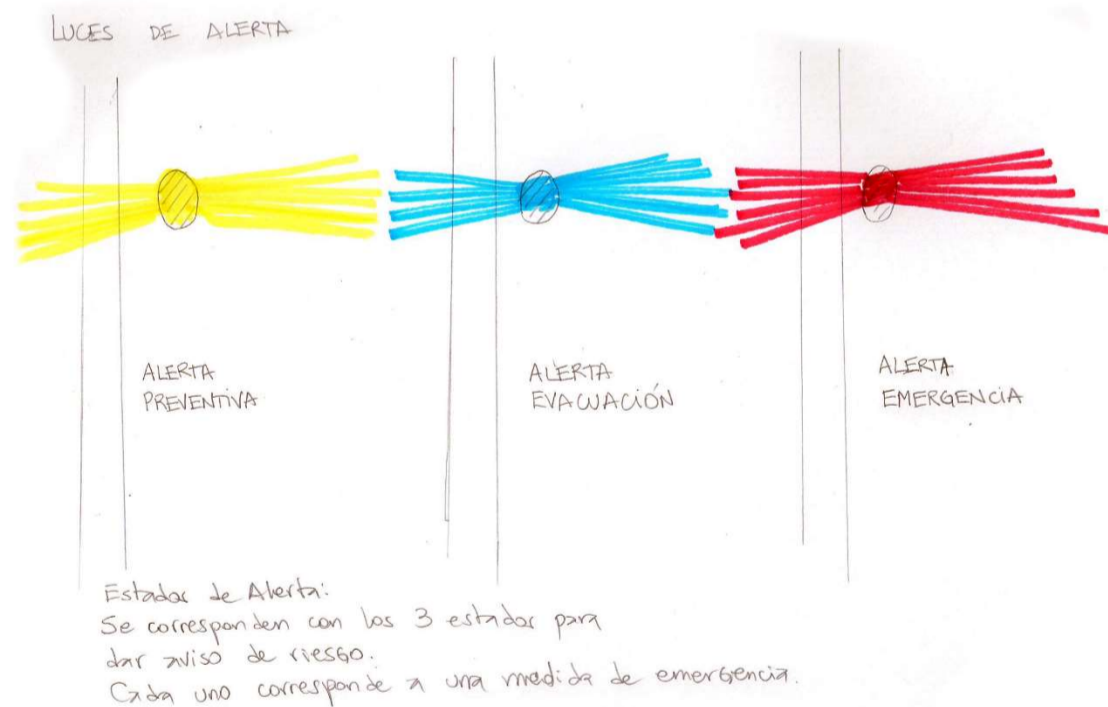 LUCES DE ALERTA
ALERTA
PREVENTIVA
ALERTA
EVACUACIÓN
ALERTA
EMERGENCIA
Estados de Alerta:
Se corresponden con los 3 estados para
dar aviso de riesgo.
Cada uno corresponde a una medida de emergencia.